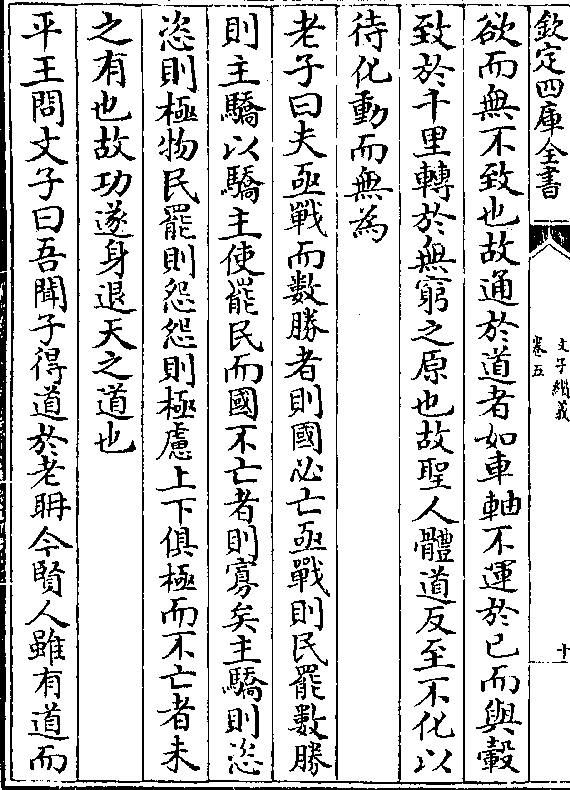 欽定四庫全書
文子纘義
卷五
十
欲而無不致也故通於道者如車軸不運於已而與轂
致於千里轉於無窮之原也故聖人體道反至不化以
待化動而無為
老子曰夫亟戰而數勝者則國必亡亟戰則民罷數勝
則主驕以驕主使罷民而國不亡者則寡矣主驕則恣
恣則極物民罷則怨怨則極慮上下俱極而不亡者未
之有也故功遂身退天之道也
平王問文子曰吾聞子得道於老耼今賢人雖有道而